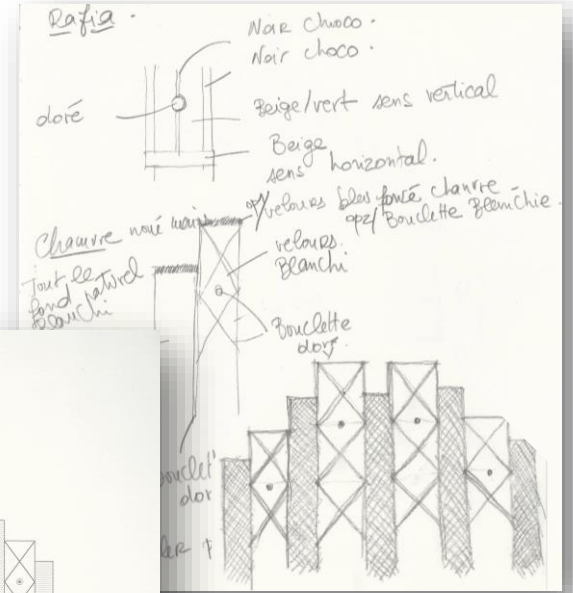 Rafia.
Noir Choco.
Noir choco.
doré
Beige/vert sens vertical
Beige
sens horizontal.
Chanvre noué main
op/velours bleu foncé chanvre
op2/Bouclette Blanchie.
velours
Blanchi
Tout le
fond naturel
Blanchi
Bouclette
dor
dor